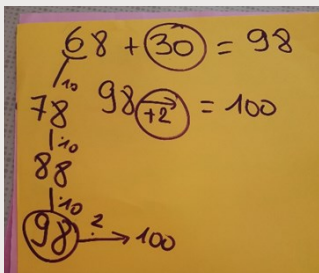 68 + 30 = 98
10
78 98 +2 = 100
10
88
10
98 2 100